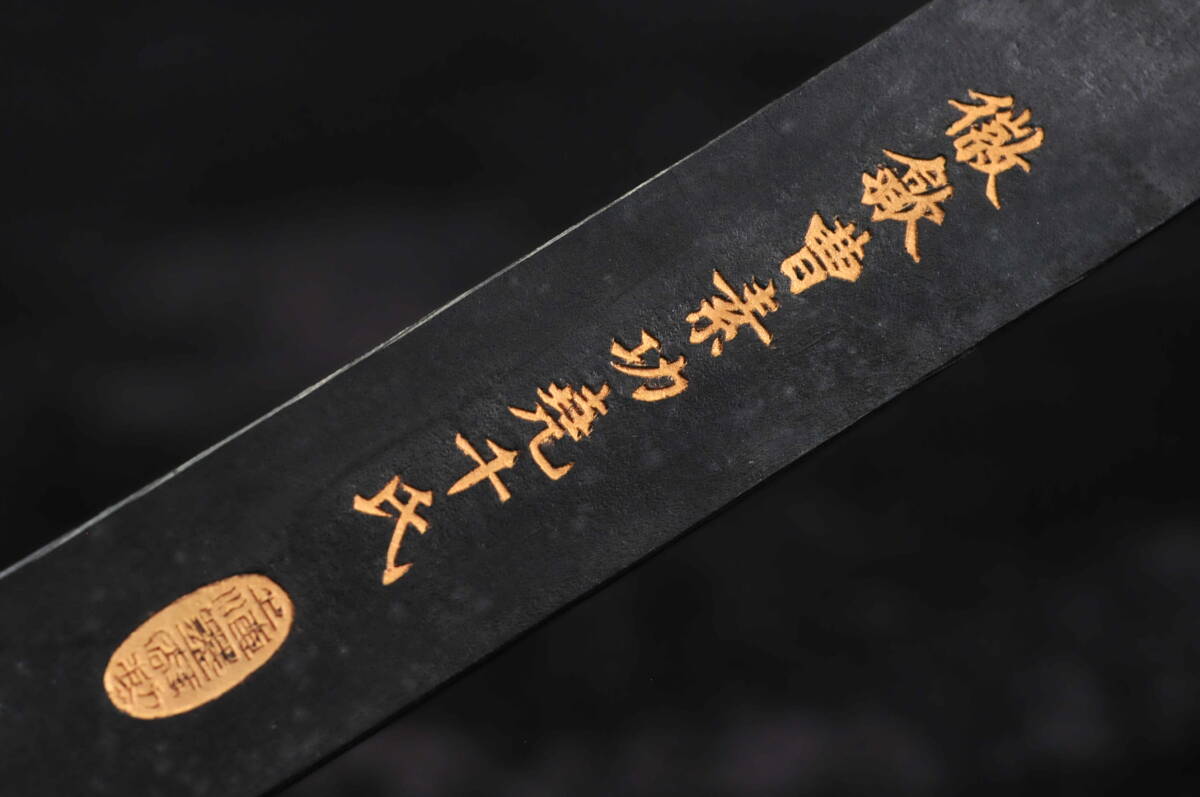 徽歙曹素功堯千氏